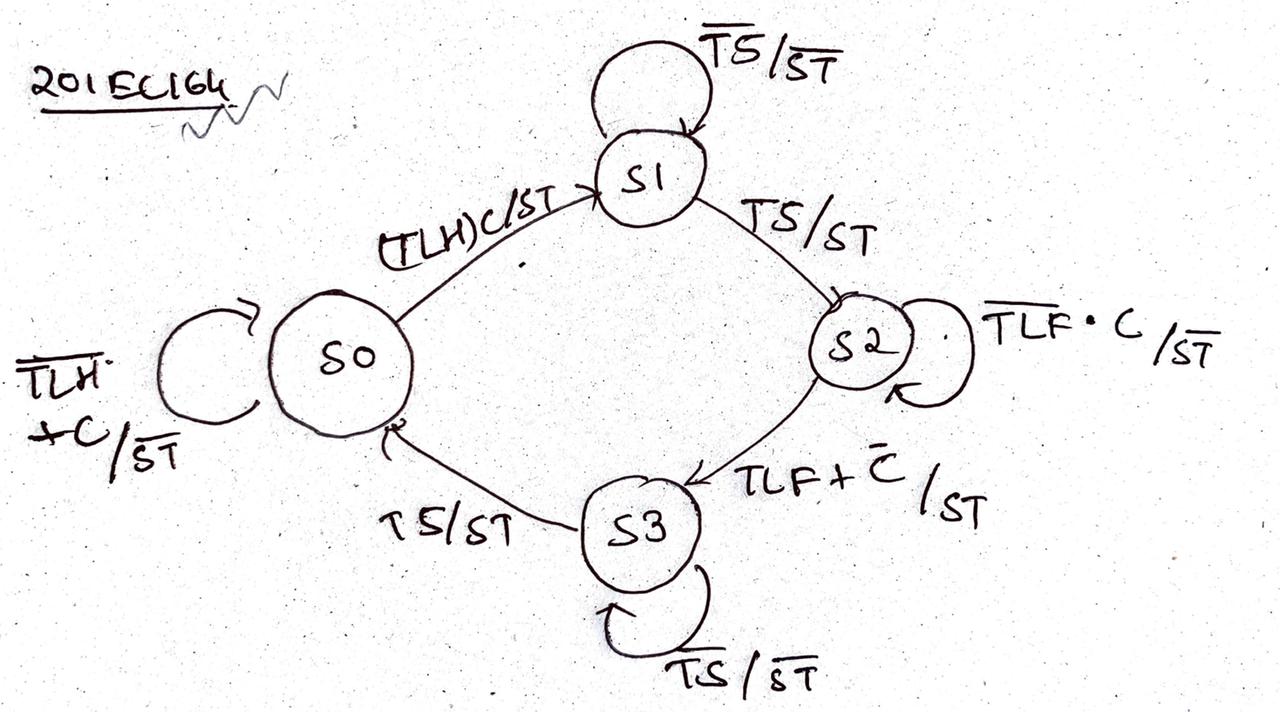 201EC164
T̅S̅/S̅T̅
S1
(TLH)C/ST
TS/ST
S0
S2
T̅L̅F̅·C/S̅T̅
T̅L̅H̅
+C/S̅T̅
TLF+C̅/ST
TS/ST
S3
T̅S̅/S̅T̅